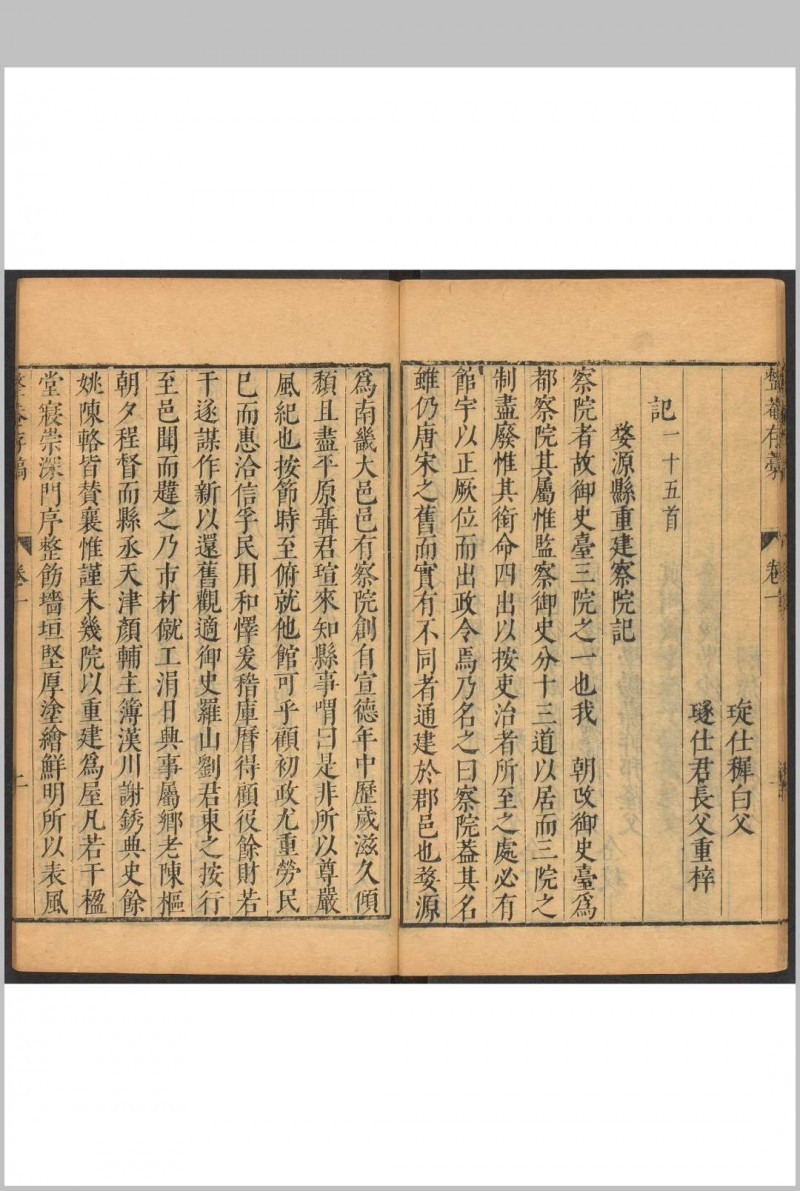 整菴存藁 卷一
琁仕穉白父
璲仕君長父重梓
記一十五首
婺源縣重建察院記
察院者故御史臺三院之一也我 朝改御史臺爲
都察院其屬惟監察御史分十三道以居而三院之
制盡廢惟其銜命四出以按吏治者所至之處必有
館宇以正厥位而出政令焉乃名之曰察院葢其名
雖仍唐宋之舊而實有不同者通建於郡邑也婺源
爲南畿大邑邑有察院創自宣德年中歷歲滋久傾
頽且盡平原聶君瑄來知縣事喟曰是非所以尊嚴
風紀也按節時至俯就他館可乎顧初政尤重勞民
巳而惠洽信孚民用和懌爰稽庫曆得顧役餘財若
干遂謀作新以還舊觀適御史羅山劉君東之按行
至邑聞而韙之乃市材僦工涓日典事屬鄉老陳樞
朝夕程督而縣丞天津顏輔主簿漢川謝銹典史餘
姚陳輅皆賛襄惟謹未幾院以重建爲屋凡若干楹
堂寢崇深門序整飭墻垣堅厚塗繪鮮明所以表風
整菴存稿 卷一